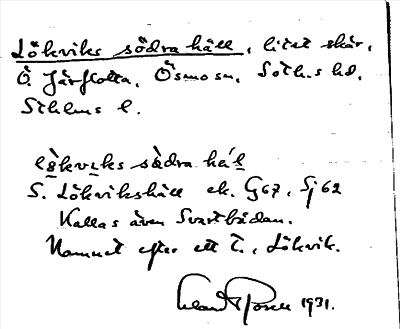 Lökviks södra häll, litet skär,
Ö. Järflotta, Ösmo sn, Soth.s hd,
Sthlms l.
lö̀kvıks sö̀dra hál
S. Lökvikshäll ek. G67, Sj62
Kallas även Svartbådan.
Namnet efter ett t., Lökvik.
1931.